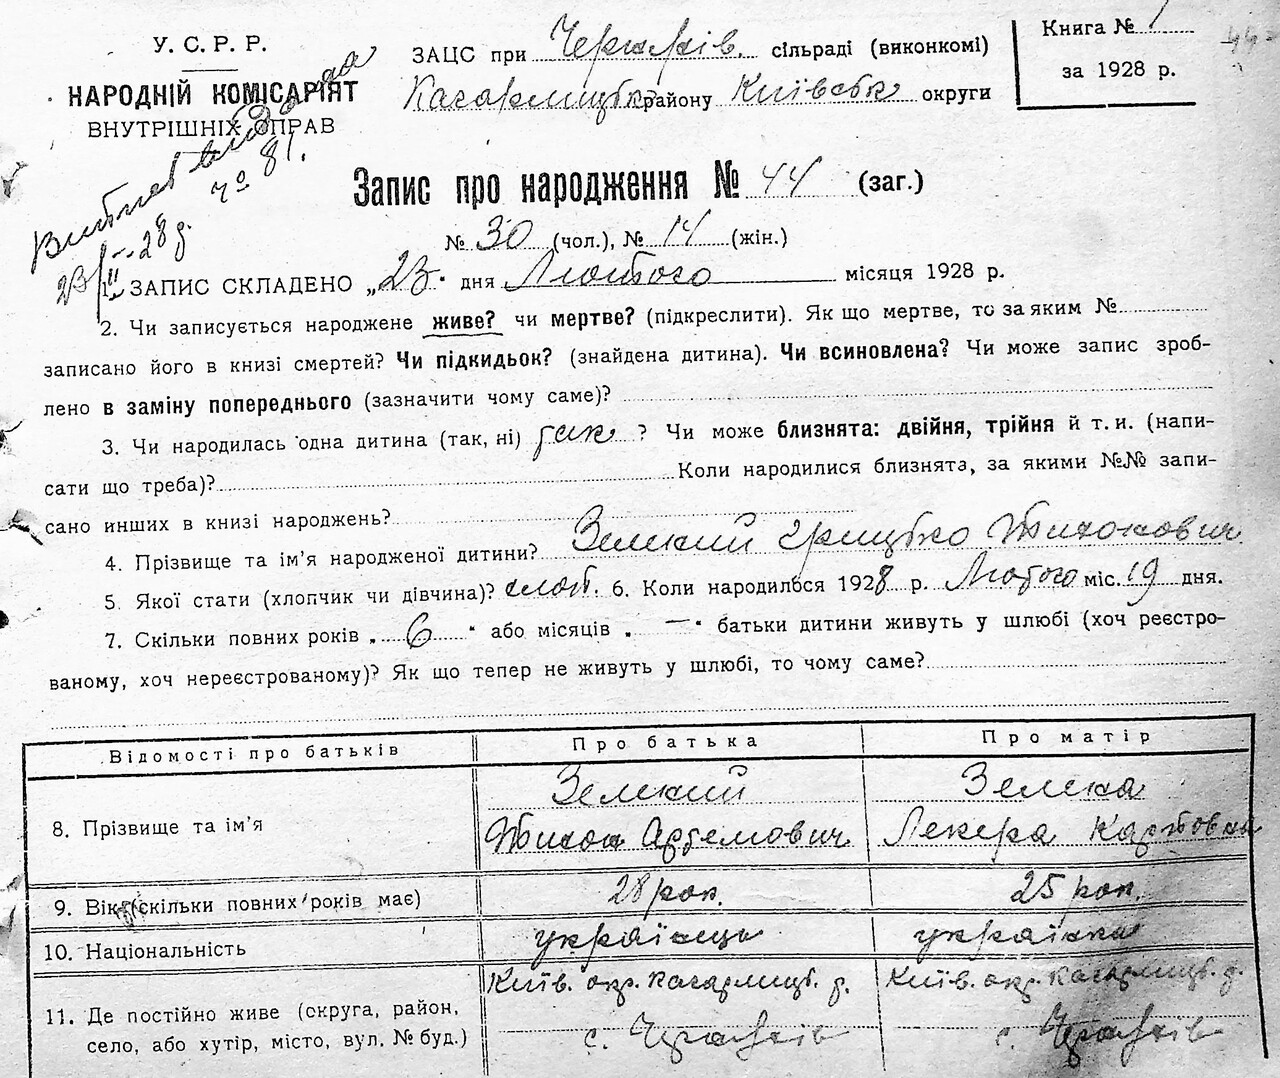 У. С. Р. Р.
НАРОДНІЙ КОМІСАРІЯТ
ВНУТРІШНІХ СПРАВ
ЗАЦС при сільраді (виконкомі)
Кагарлицьк. району Київськ округи
Книга № 1
за 1928 р.
44
Витяг видано
23/II-28 р. № 81.
Запис про народження № 44 (заг.)
№ 30 (чол.), № 14 (жін.)
1. ЗАПИС СКЛАДЕНО „23" дня Лютого місяця 1928 р.
2. Чи записується народжене живе? чи мертве? (підкреслити). Як що мертве, то за яким №
записано його в книзі смертей? Чи підкидьок? (знайдена дитина). Чи всиновлена? Чи може запис зроб-
лено в заміну попереднього (зазначити чому саме)?
3. Чи народилась одна дитина (так, ні) так ? Чи може близнята: двійня, трійня й т. и. (напи-
сати що треба)? Коли народилися близнята, за якими №№ запи-
сано инших в книзі народжень?
4. Прізвище та ім'я народженої дитини? Зелений Грицько Тихонович
5. Якої стати (хлопчик чи дівчина)? хлоп. 6. Коли народилося 1928 р. Лютого міс. 19 дня.
7. Скільки повних років „ 6 " або місяців „ — " батьки дитини живуть у шлюбі (хоч реєстро-
ваному, хоч нереєстрованому)? Як що тепер не живуть у шлюбі, то чому саме?
Відомості про батьків Про батька Про матір
8. Прізвище та ім'я
Зелений
Тихон Артемович
Зелена
9. Вік (скільки повних років має) 28 рок. 25 рок.
10. Національність українець українка
11. Де постійно живе (округа, район,
село, або хутір, місто, вул. № буд.)
Київ. окр. Кагарлицьк. р.
с.
Київ. окр. Кагарлицьк. р.
с.